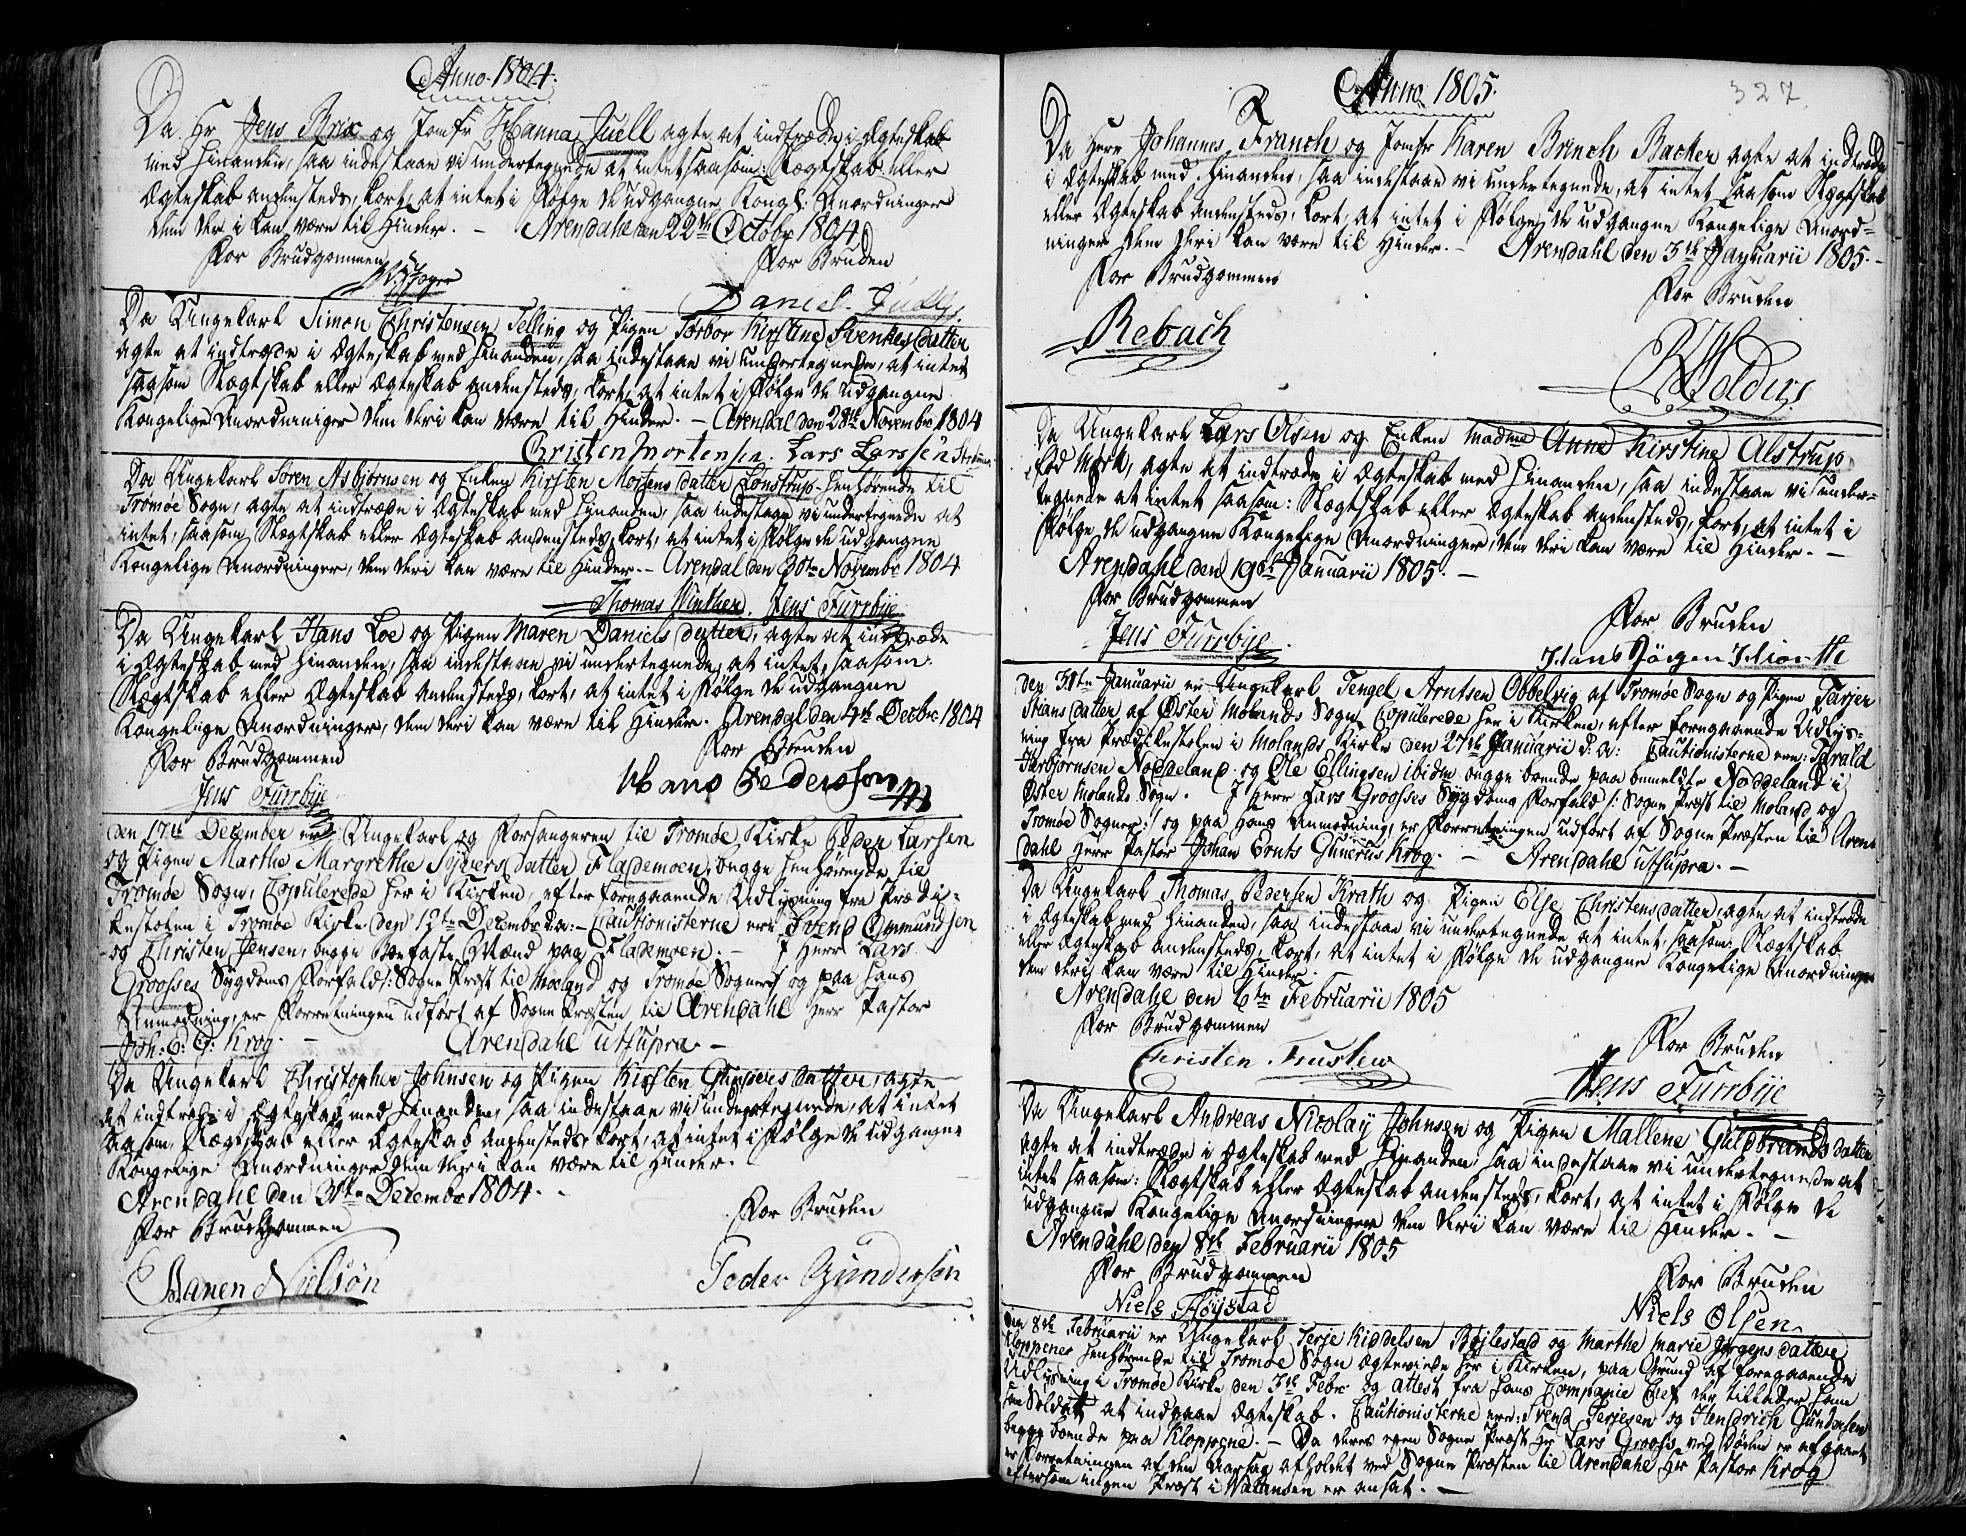 Anno 1804.
Da Hr Jens Brix og Jomfr Hanna Juell agte at indtræde i Ægteskab
med hinanden, saa indestaae vi undertegnede at intet saasom: Slægtskab eller
Ægteskab andensteds, kort, at intet i Følge de udgangne Kongl: Anordninger
dem deri kan være til Hinder. – Arendahl den 22de Octobr 1804
For Brudgommen For Bruden
Daniel Juell
Da Ungekarl Simon Christensen Telling og Pigen Torbor Kirstine Svenkesdatter
agte at indtræde i Ægteskab med hinanden, saa indestaae vi undertegnede, at intet
saasom Slægtskab eller Ægteskab andensteds, kort, at intet i Følge de udgangne
Kongelige Anordninger dem deri kan være til Hinder. – Arendal den 28de Novembr 1804
Christen Mortensen. Lars Larssen
Da Ungekarl Søren Asbjørnsen og Enken Kirsten Mortensdatter Lonstrup henhørende til
Tromøe Sogn, agte at indtræde i Ægteskab med hinanden, saa indestaae vi undertegnede at
intet, saasom Slægtskab eller Ægteskab andensteds, kort, at intet i Følge de udgangne
Kongelige Anordninger, dem deri kan være til Hinder. – Arendal den 30te Novembr 1804
Thomas Winther. Jens Furrbye
Da Ungekarl Hans Loe og Pigen Maren Danielsdatter, agte at indtræde
i Ægteskab med hinanden, saa indestaae vi undertegnede, at intet, saasom:
Slægtskab eller Ægteskab andensteds, kort, at intet i Følge de udgangne
Kongelige Anordninger, dem deri kan være til Hinder. Arendal den 4de Decbr. 1804
For Brudgommen For Bruden
Jens Furrbye Hans Pedersson
den 17de December ere Ungekarl og Forsangeren til Tromøe Kirke Peder Larsen
og Pigen Marthe Margrethe Sÿversdatter Flademoen, begge henhørende til
Tromøe Sogn, Copulerede her i Kirken, efter foregaaende Udlysning fra Prædi-
kestolen i Tromøe Kirke den Decembr d.a:– Cautionisterne ere Svend Ommundsen
og Christen Jensen, begge Boefaste Mænd paa Flademoen. – I Herr Lars
Groosses Sygdoms Forfald /: Sogne Præst til Moeland og Tromøe Sogner :/ og paa hans
Anmodning, er Forretningen udført af Sogne Præsten til Arendahl Herr Pastor
Joh: E: G: Krog. – Arendahl utsupra. –
Da Ungekarl Christopher Johnsen og Pigen Kirsten Gundersdatter, agte
at indtræde i Ægteskab med hinanden, saa indestaae vi undertegnede, at intet
saasom, Slægtskab eller Ægteskab andensteds, kort, at intet i Følge de udgangne
Kongelige Anordninger dem deri kan være til Hinder.
Arendahl den 31te Decembr 1804. –
For Brudgommen For Bruden
Aanen Nilsøn Peder Gundersøn
Anno 1805. 327.
Da Herr Johannes Franch og Jomfr Karen Brinch Backer agte at indtræde
i Ægteskab med hinanden, saa indestaae vi undertegnede, at intet saasom Slægtskab
eller Ægteskab andensteds, kort, at intet i Følge de udgangne Kongelige Anord-
ninger dem deri kan være til Hinder. – Arendahl den 3die Januarii 1805. –
For Brudgommen For Bruden
Rebach
Da Ungekarl Lars Olsen og Enken Madme Anne Kirstine Alstrup
fød Mørk, agte at indtræde i Ægteskab med hinanden, saa indestaae vi under-
tegnede at intet saasom: Slægtskab eller Ægteskab andensteds, kort, at intet i
Følge de udgangne Kongelige Anordninger, dem deri kan være til Hinder. –
Arendahl den 19de Januarii 1805. –
For Brudgommen For Bruden
Jens Furrbye. Hans Jörgen
den 31te Januarii er Ungekarl Tengel Arntsen Obbelvig af Tromøe Sogn og Pigen Tarjer
Stiansdatter af Øster Molands Sogn Copulerede her i Kirken, efter foregaaende Udlys-
ning fra Prædikestolen i Molands Kirke den 27de Januarii d: a: Cautionisterne ere: Tharald
Torbjørnsen Noddeland og Ole Ellingsen ibidm begge boende paa bemeldte Noddeland i
Øster Molands Sogn. I Herr Lars Groosses Sygdoms Forfald /: Sogne Præst til Moland og
Tromøe Sogner :/ og paa hans Anmodning, er Forretningen udført af Sogne Præsten til Aren-
dahl Herr Pastor Johan Ernts Gunerus Krog. – Arendahl utsupra. –
Da Ungekarl Thomas Pedersen Krath og Pigen Else Christensdatter, agte at indtræde
i Ægteskab med hinanden, saa indestaae vi undertegnede at intet, saasom: Slægtskab
eller Ægteskab andensteds, kort, at intet i Følge de udgangne Kongelige Anordninger
dem deri kan være til Hinder.
Arendahl den 6te Februarii 1805
For Brudgommen For Bruden
Christen Jens Furrbye
Da Ungekarl Andreas Nicolay Johnsen og Pigen Mallene Guldbrandsdatter
agte at indtræde i Ægteskab med hinanden, saa indestaae vi undertegnede at
intet saasom: Slægtskab eller Ægteskab andensteds, kort, at intet i Følge de
udgangne Kongelige Anordninger dem deri kan være til Hinder. –
Arendahl den 8de Februarii 1805
For Brudgommen For Bruden
Niels Høystad Niels Olsen
den 8de Februarii er Ungekarl Terje Kiddelsen Bøjlestad og Marthe Marie Jørgensdatter
Kloppene henhørende til Tromøe Sogn Ægteviede her i Kirken, paa Grund af foregaaende
Udlysning i Tromøe Kirke den 3die Febr og Attest fra hans Compagnie Chef der tillader ham
som Soldat at indgaae Ægteskab. Cautionisterne ere: Svend Terjesen og Hendrich Gundersen
begge boende paa Kloppene. – Da deres egen Sogne Præst Hr Lars Grooss ved Døden er afgaaet
er Forretningen af den Aarsag afholdet ved Sogne Præsten til Arendahl Hr Pastor Krog
eftersom ingen Præst i Vacancen er ansat. –